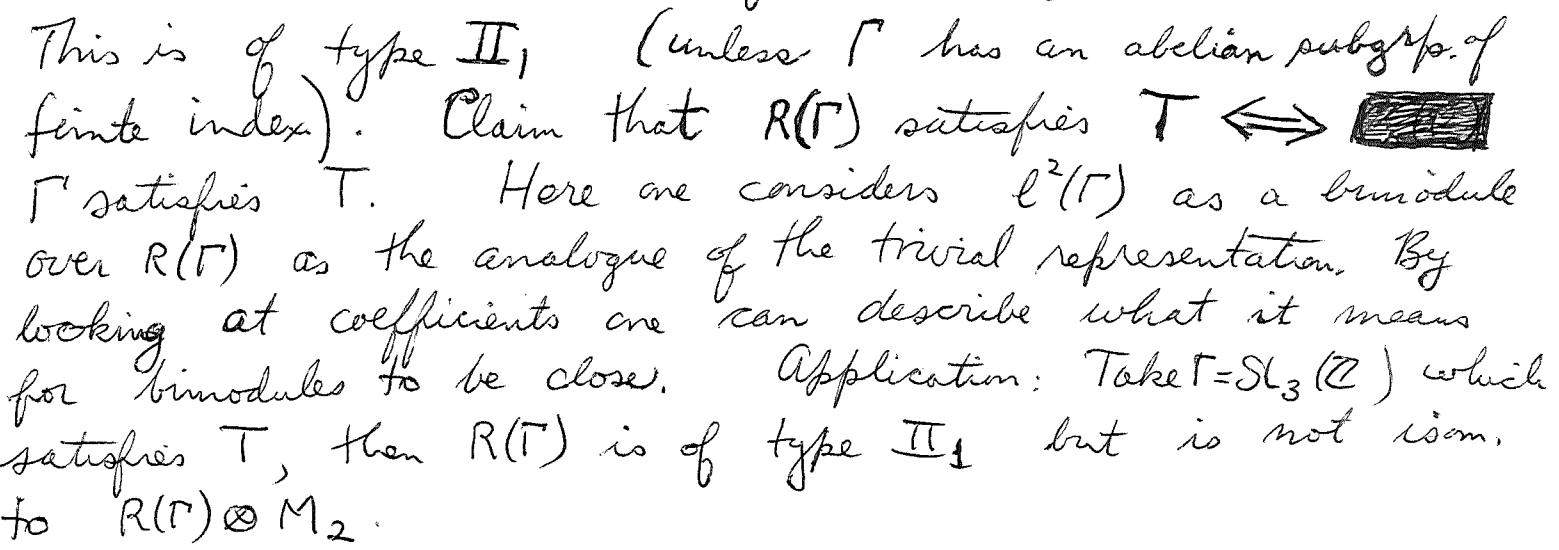 This is of type II₁ (unless Γ has an abelian subgrp. of
finite index). Claim that R(Γ) satisfies T ⟺
Γ satisfies T. Here one considers ℓ²(Γ) as a bimodule
over R(Γ) as the analogue of the trivial representation. By
looking at coefficients one can describe what it means
for bimodules to be close. Application: Take Γ=SL₃(ℤ) which
satisfies T, then R(Γ) is of type II₁ but is not isom.
to R(Γ)⊗M₂.